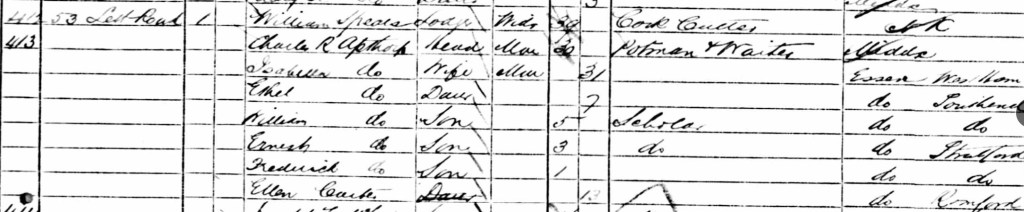 412 53 1 William Spears Lodger Wid 39 Cork Cutter NK
413 Charles R Apthorp Head Mar 30 Potman & Waiter Middx
Isabella do Wife Mar 31 Essex Ham
Ethel do Daur 7 do Southend
William do Son 5 Scholar do do
Ernest do Son 3 do do Stratford
Frederick do Son 1 do do
Ellen Daur 13 do Romford